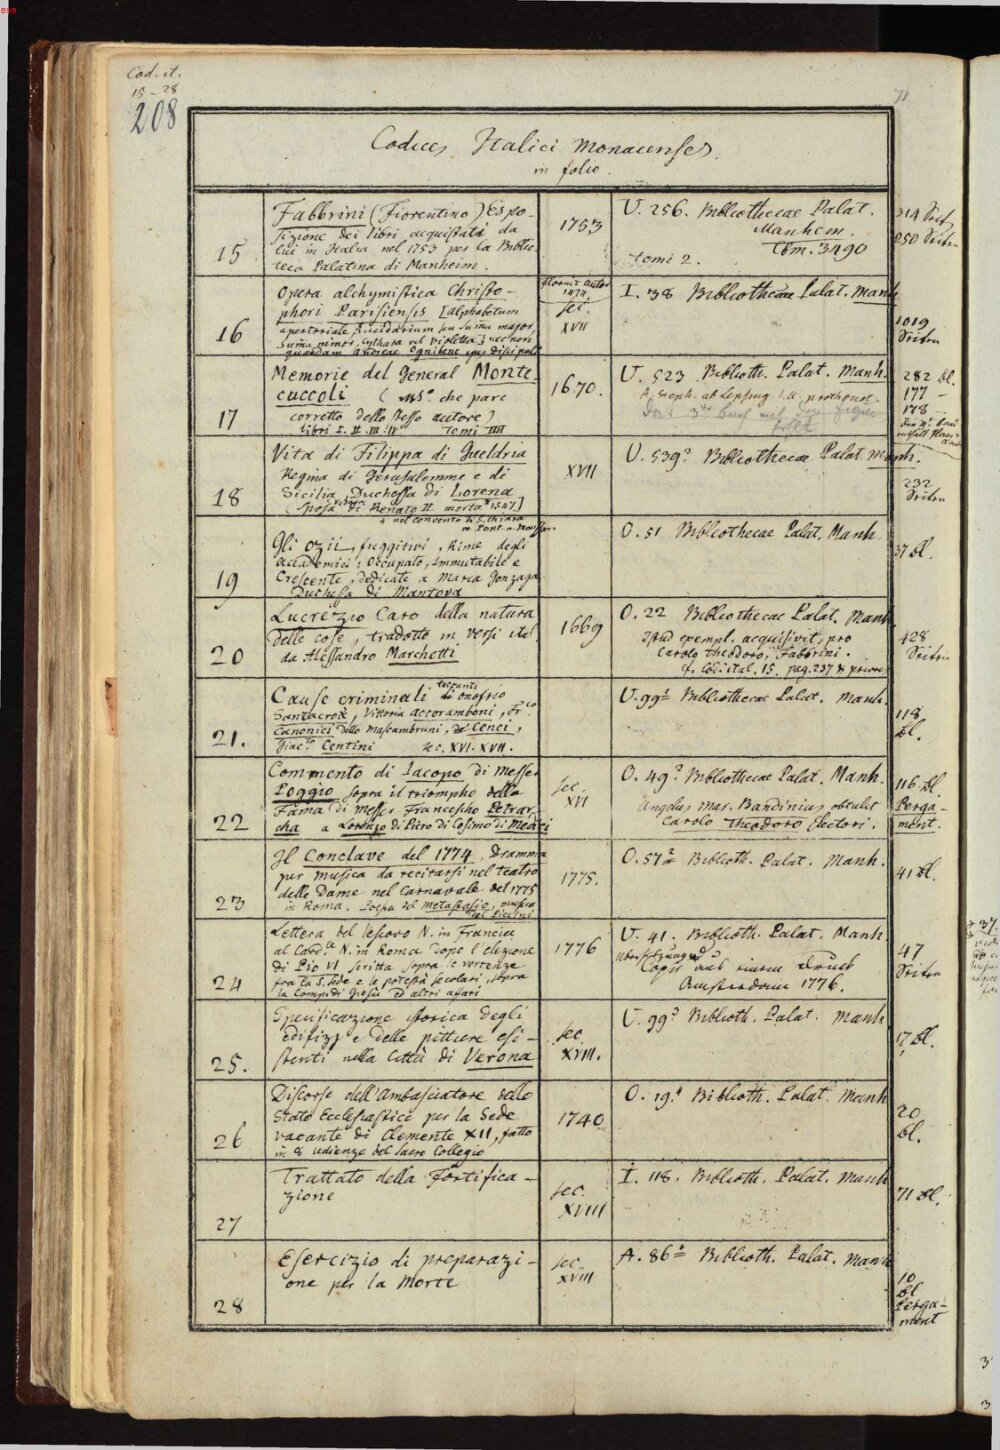 BSB
Cod. it.
15 - 28
208
Codices Italici monacenses
in folio.
15
Fabbrini (Fiorentino) Espo-
sizione dei libri acquistati da
lui in Italia nel 1753 per la Biblio-
teca Palatina di Manheim.
1753
U. 256. Bibliothecae Palat.
Manhem.
Cbm. 3490
tomi 2.
314
250
16
Opera alchymistica Christo-
phori Parisiensis [alphabetum
apertoriale, Lucidarium seu suma major,
suma minor, Cythara vel violetta] nec non
quaedam Andreae Ognibene ejus discipuli
floruit autor
1474.
sec.
XVII
I. 38 Bibliothecae Palat. Manh
1019
Seiten
17
Memorie del General Monte-
cuccoli (ms.° che pare
corretto dello stesso autore)
libri I. II. III. IV Tomi IIII
1670.
U. 523 Biblioth. Palat. Manh.
282 bl.
177 -
178 -
18
Vita di Filippa di Gueldria
Regina di Gerusalemme e di
Sicilia, Duchessa di Lorena
(sposa di Renato II morta 1547.)
+ nel convento di S. Chiara
a Pont-a-Mousson
XVII
U. 539 Bibliothecae Palat Manh.
232
Seiten
19
Gli ozii fuggitivi, Rime degli
accademici: Occupato, Immutabile e
Crescente, dedicate a Maria Gonzaga
Duchessa di Mantova
O. 51 Bibliothecae Palat. Manh.
37 bl.
20
Lucrezio Caro della natura
delle cose, tradotto in versi ital.
da Alessandro Marchetti
1669
O. 22 Bibliothecae Palat. Manh
exempl. acquisivit, pro
Carolo Theodoro, Fabbrini.
cf. Cod. ital. 15. pag. 237
428
Seiten
21.
Cause criminali toccanti
di Onofrio
Santacroce, Vittoria accoramboni, Fr.co
Canonici detto Mascambruni, Cenci,
Giac.° Centini sec. XVI. XVII.
U. 99 Bibliothecae Palat. Manh.
118
bl.
22
Commento di Iacopo di Messer
Poggio sopra il triompho della
Fama di Messer Francescho Petrar-
cha a Lorenzo di Piero di Cosimo di Medici
sec.
XVI
O. 49 Bibliothecae Palat. Manh.
Angelus Mar. Bandinius obtulit
Carolo Theodoro Electori.
116 bl.
Perga-
ment.
23
Il Conclave del 1774. Dramma
per musica da recitarsi nel teatro
delle Dame nel Carnavale del 1775
in Roma. Poesia del metastasio, musica
del Piccini
1775.
O. 57 Biblioth. Palat. Manh.
41 bl.
24
Lettera del Vescovo N. in Francia
al Card.le N. in Roma dopo l'elezione
di Pio VI scritta sopra le vertenze
fra la S. Sede e le potestà secolari, sopra
la Comp. di Giesù ed altri affari
1776
U. 41. Biblioth. Palat. Manh.
Copie aus einem Druck
Amsterdam 1776.
47
Seiten
25.
Specificazione storica degli
edifizj e delle pitture esi-
stenti nella Città di Verona
sec
XVIII.
U. 99 Biblioth. Palat. Manh
17 bl.
26
Discorso dell'Ambasciatore dello
Stato Ecclesiastico per la Sede
vacante di Clemente XII, fatto
in udienze del Sacro Collegio
1740
O. 19. Biblioth. Palat. Manh
20
bl.
27
Trattato della Fortifica-
zione
sec.
XVIII
I. 118. Biblioth. Palat. Manh
71 bl.
28
Esercizio di preparazi-
one per la morte
sec.
XVIII
A. 86 Biblioth. Palat. Manh
10
bl
Perga-
ment
37.